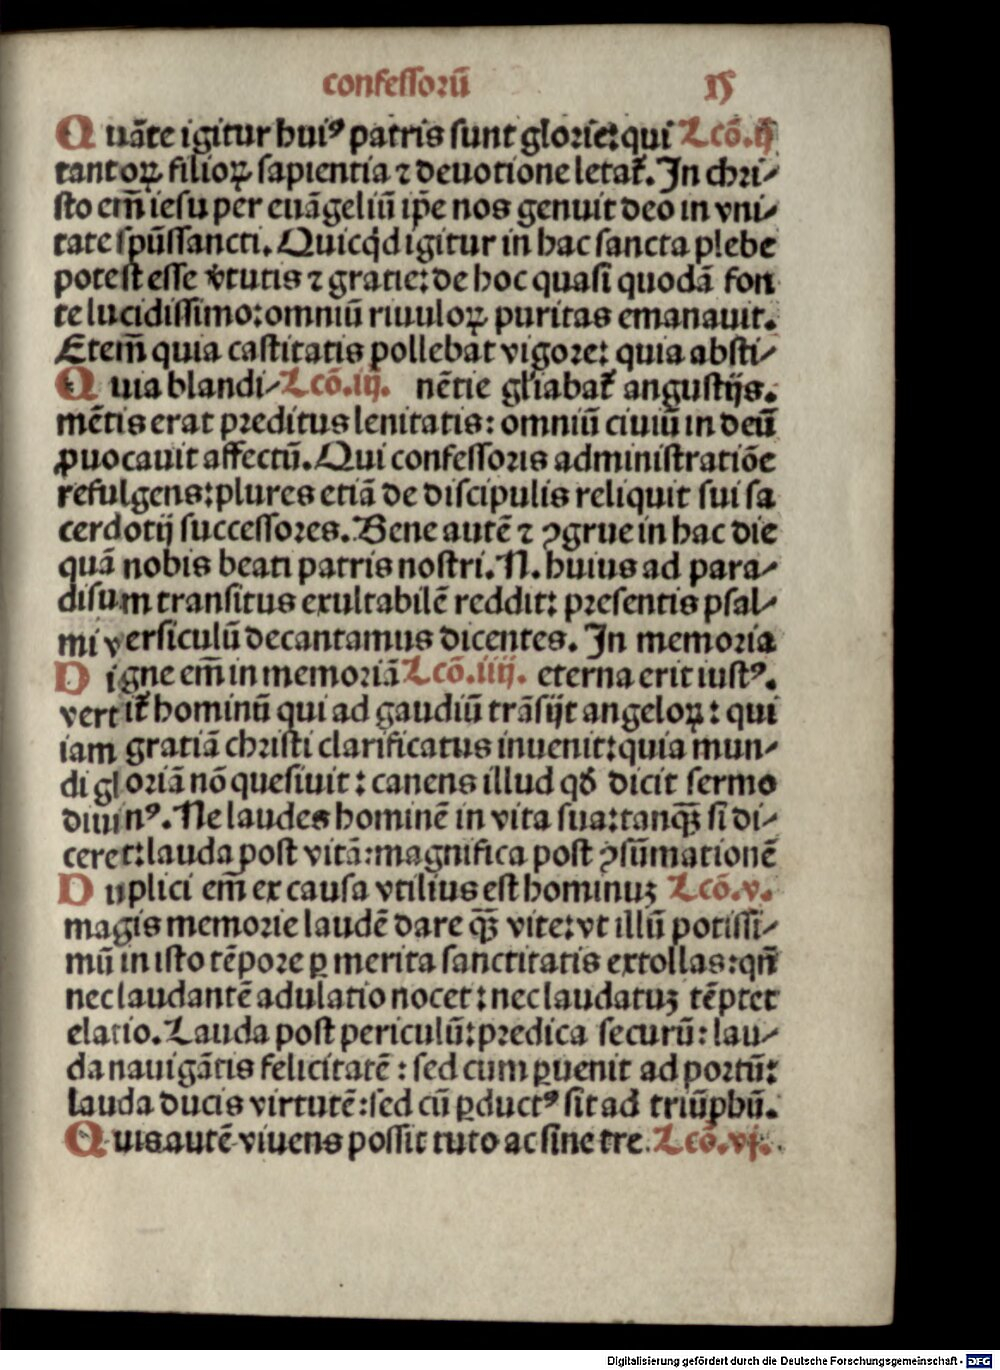 confessorū 15
Quāte igitur huiꝰ patris sunt glorie: qui Lcō.ij
tantoꝝ filioꝝ sapientia ⁊ deuotione letat᷑. In chri-
sto em̄ iesu per euāgeliū ip̄e nos genuit deo in vni-
tate sp̄ūssancti. Quicq̇d igitur in hac sancta plebe
potest esse v̓tutis ⁊ gratie: de hoc quasi quodā fon
te lucidissimo: omniū riuuloꝝ puritas emanauit.
Etem̄ quia castitatis pollebat vigore: quia absti-
Quia blandi- Lcō.iij. nētie gl̓iabat᷑ angustijs.
mētis erat preditus lenitatis: omniū ciuiū in deū
ꝓuocauit affectū. Qui confessoris administratiōe
refulgens: plures etiā de discipulis reliquit sui sa
cerdotij successores. Bene autē ⁊ ꝯgrue in hac die
quā nobis beati patris nostri. N. huius ad para-
disum transitus exultabilē reddit: presentis psal-
mi versiculū decantamus dicentes. In memoria
Digne em̄ in memoriā Lcō.iiij. eterna erit iustꝰ.
vertit᷑ hominū qui ad gaudiū trāsijt angeloꝝ: qui
iam gratiā christi clarificatus inuenit: quia mun-
di gloriā nō quesiuit: canens illud qđ dicit sermo
diuinꝰ. Ne laudes hominē in vita sua: tanq̄ꝫ si di-
ceret: lauda post vitā: magnifica post ꝯsūmationē
Duplici em̄ ex causa vtilius est hominuꝫ Lcō.v.
magis memorie laudē dare q̄ꝫ vite: vt illū potissi-
mū in isto tēpore ꝑ merita sanctitatis extollas: qn̄
nec laudantē adulatio nocet: nec laudatuꝫ tēptet
elatio. Lauda post periculū: predica securū: lau-
da nauigātis felicitatē: sed cum ꝑuenit ad portū:
lauda ducis virtutē: sed cū ꝑductꝰ sit ad triūphū.
Quis autē viuens possit tuto ac sine tre. Lcō.vj.
Digitalisierung gefördert durch die Deutsche Forschungsgemeinschaft - DFG